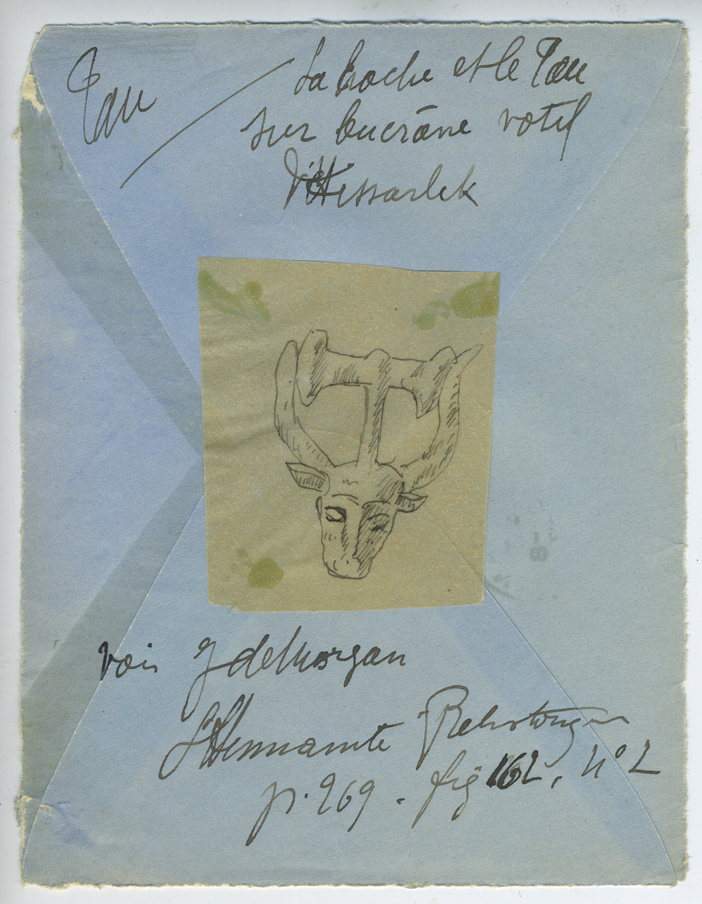 Tau
La hache et le Tau
sur bucrâne votif
d'Hissarlik
voir J de Morgan
L'Humanité Préhistorique
p. 269 . fig 162, n° 2